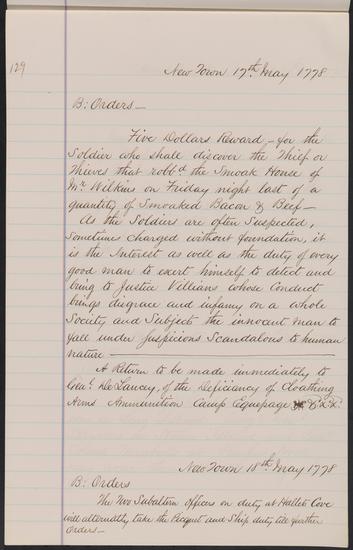 129
New Town 17th May 1778
B: Orders —
Five Dollars Reward — for the
Soldier who shall discover the Thief or
Thieves that robb'd the Smoak House of
Mr Wilkins on Friday night last of a
quantity of Smoaked Bacon & Beef —
As the Soldiers are often Suspected,
Sometimes charged without foundation, it
is the Interest as well as the duty of every
good man to exert himself to detect and
bring to Justice Villians whose Conduct
brings disgrace and infamy on a whole
Society and Subjects the innocent man to
fall under Suspicions Scandalous to human
nature —
A Return to be made immediately to
Genl De Lancey, of the Deficiency of Cloathing
Arms Ammunition Camp Equepage &c.&c.
New Town 18th May 1778
B: Orders
The Two Subaltern officers on duty at Hallets Cove
will alternatly take the Picquet and Ship duty till further
Orders —